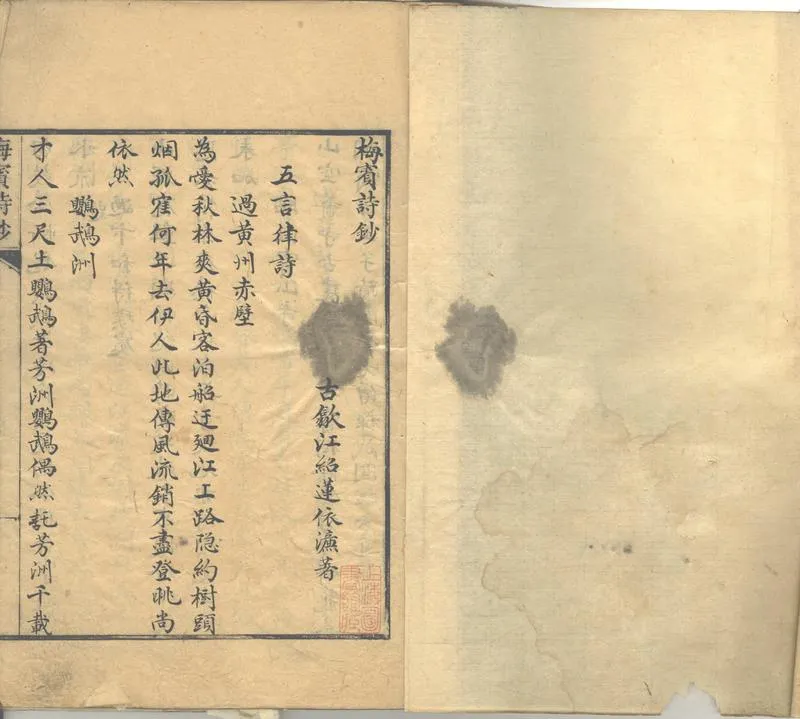 梅賓詩鈔
古歙江紹蓮依濂著
五言律詩
過黃州赤壁
為愛秋林爽黃昏客泊船迂廻江工路隐約樹頭
烟孤窐何年去伊人此地傳風流銷不盡登眺尚
依然
鸚鵡洲
才人三尺土鸚鵡著芳洲鸚鵡偶然託芳洲千載
梅賓詩鈔